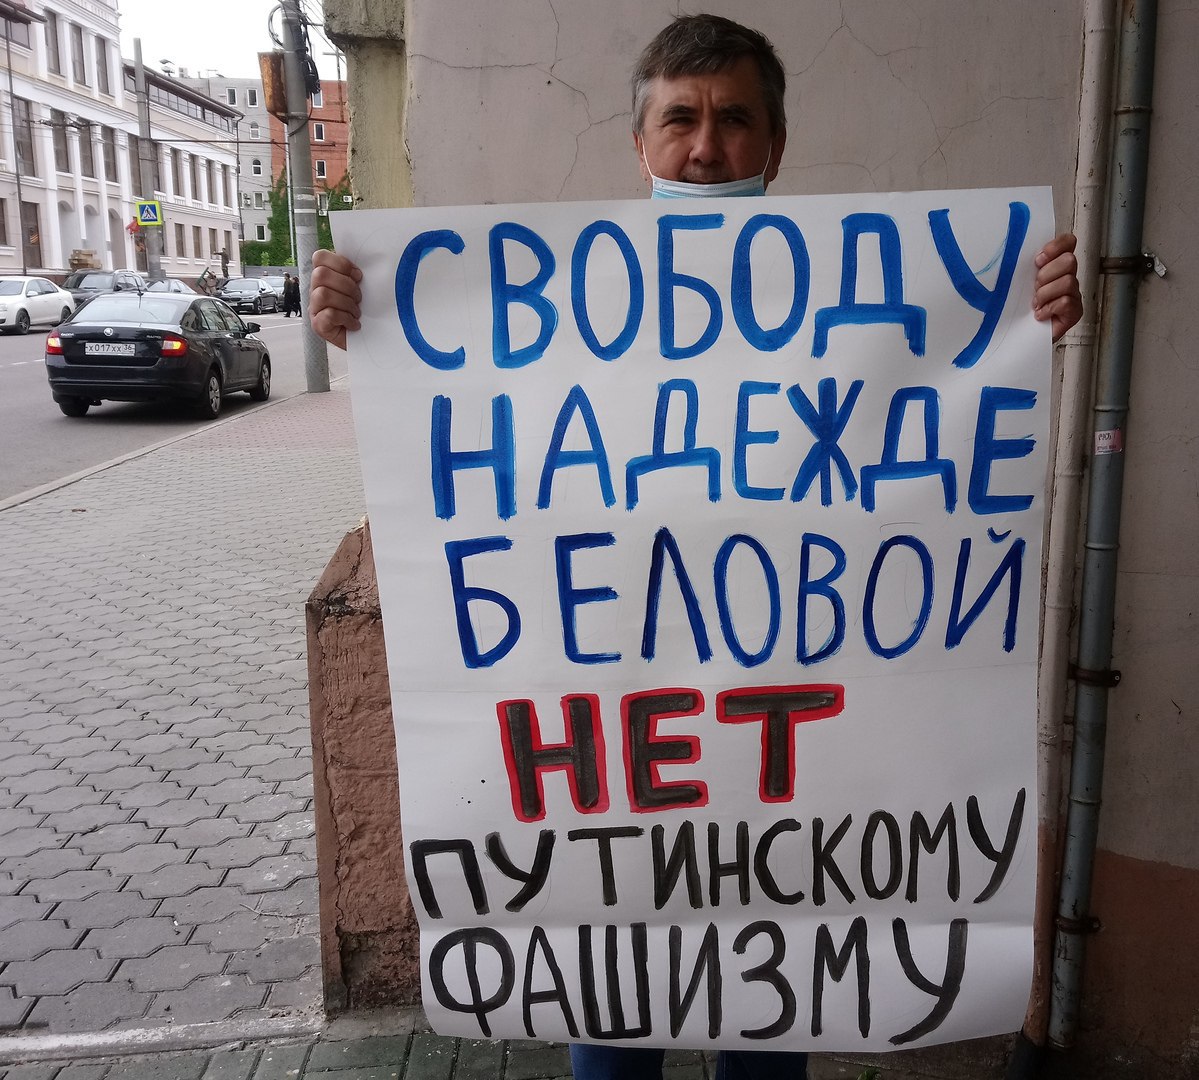 СВОБОДУ
НАДЕЖДЕ
БЕЛОВОЙ
НЕТ
ПУТИНСКОМУ
ФАШИЗМУ
х017хх 36